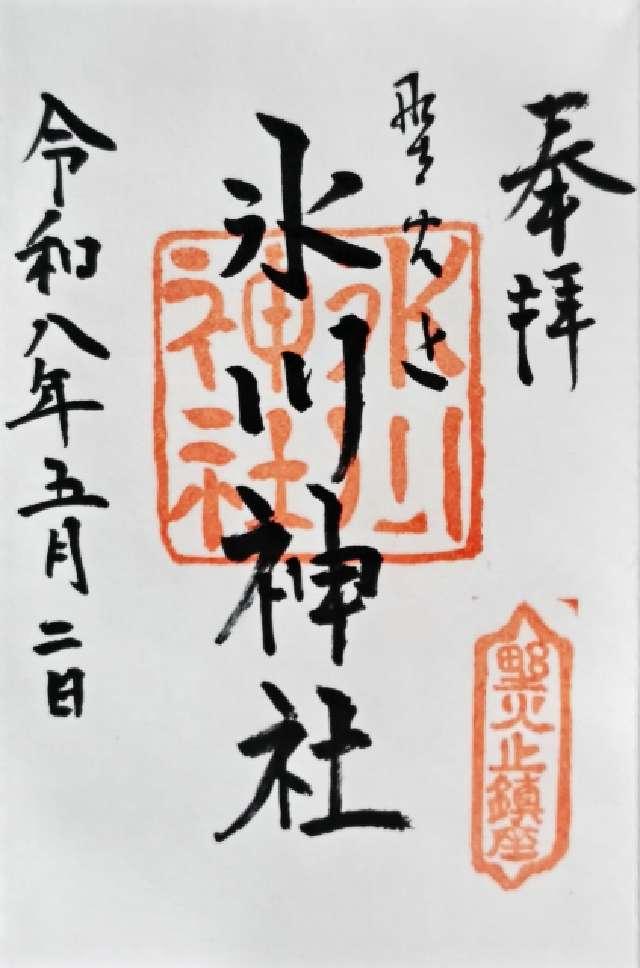 奉拝
野火止
氷川神社
令和八年五月二日
氷川
神社
野火止鎮座